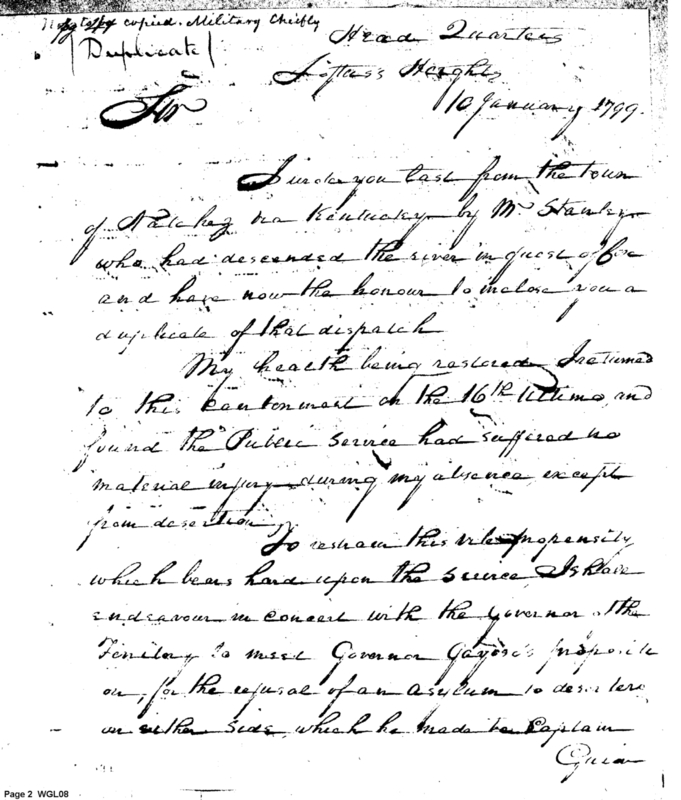 copied. Military Chiefly
(Duplicate)
Head Quarters
Loftus's Heights
10 January 1799.
Sir
I wrote you last from the town
of Natchez via Kentucky by Mr Stanley
who had descended the river in quest of
and have now the honour to inclose you a
duplicate of that dispatch
My health being restored I returned
to this cantonment on the 16th Ultimo, and
found the Public Service had suffered no
material injury during my absence except
from desertion,
To restrain this vile propensity
which bears hard upon the service I shall
endeavour in concert with the Governor of the
Territory to meet Governor Gayoso's propositi
on, for the refusal of an asylum to deserters
on either side, which he made to Captain
Guion
Page 2 WGL08